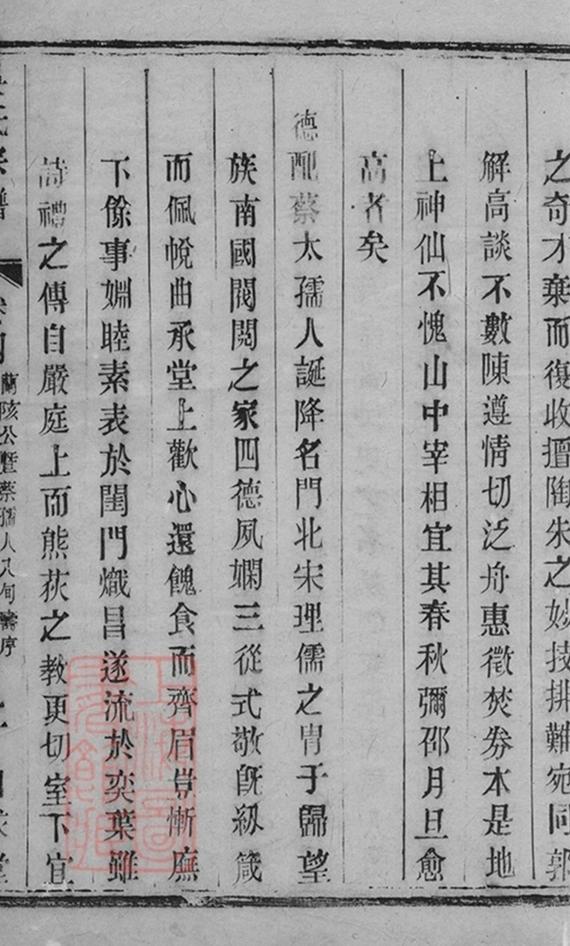 之奇才棄而復收擅陶朱之妙技排難宛同郭
解高談不數陳遵情切泛舟惠徵焚券本是地
上神仙不愧山中宰相宜其春秋彌邵月旦愈
高者矣
德配蔡太孺人誕降名門北宋理儒之冑于歸望
族南國閥閱之家四德夙嫻三從式敬旣級箴
而佩帨曲承堂上歡心還餽食而齊眉豈慚廡
下餘事婣睦素表於閨門熾昌遂流於奕葉雖
詩禮之傳自嚴庭上而熊荻之教更切室下宜
氏宗譜
蘭陔公暨蔡孺人八旬壽序
堂